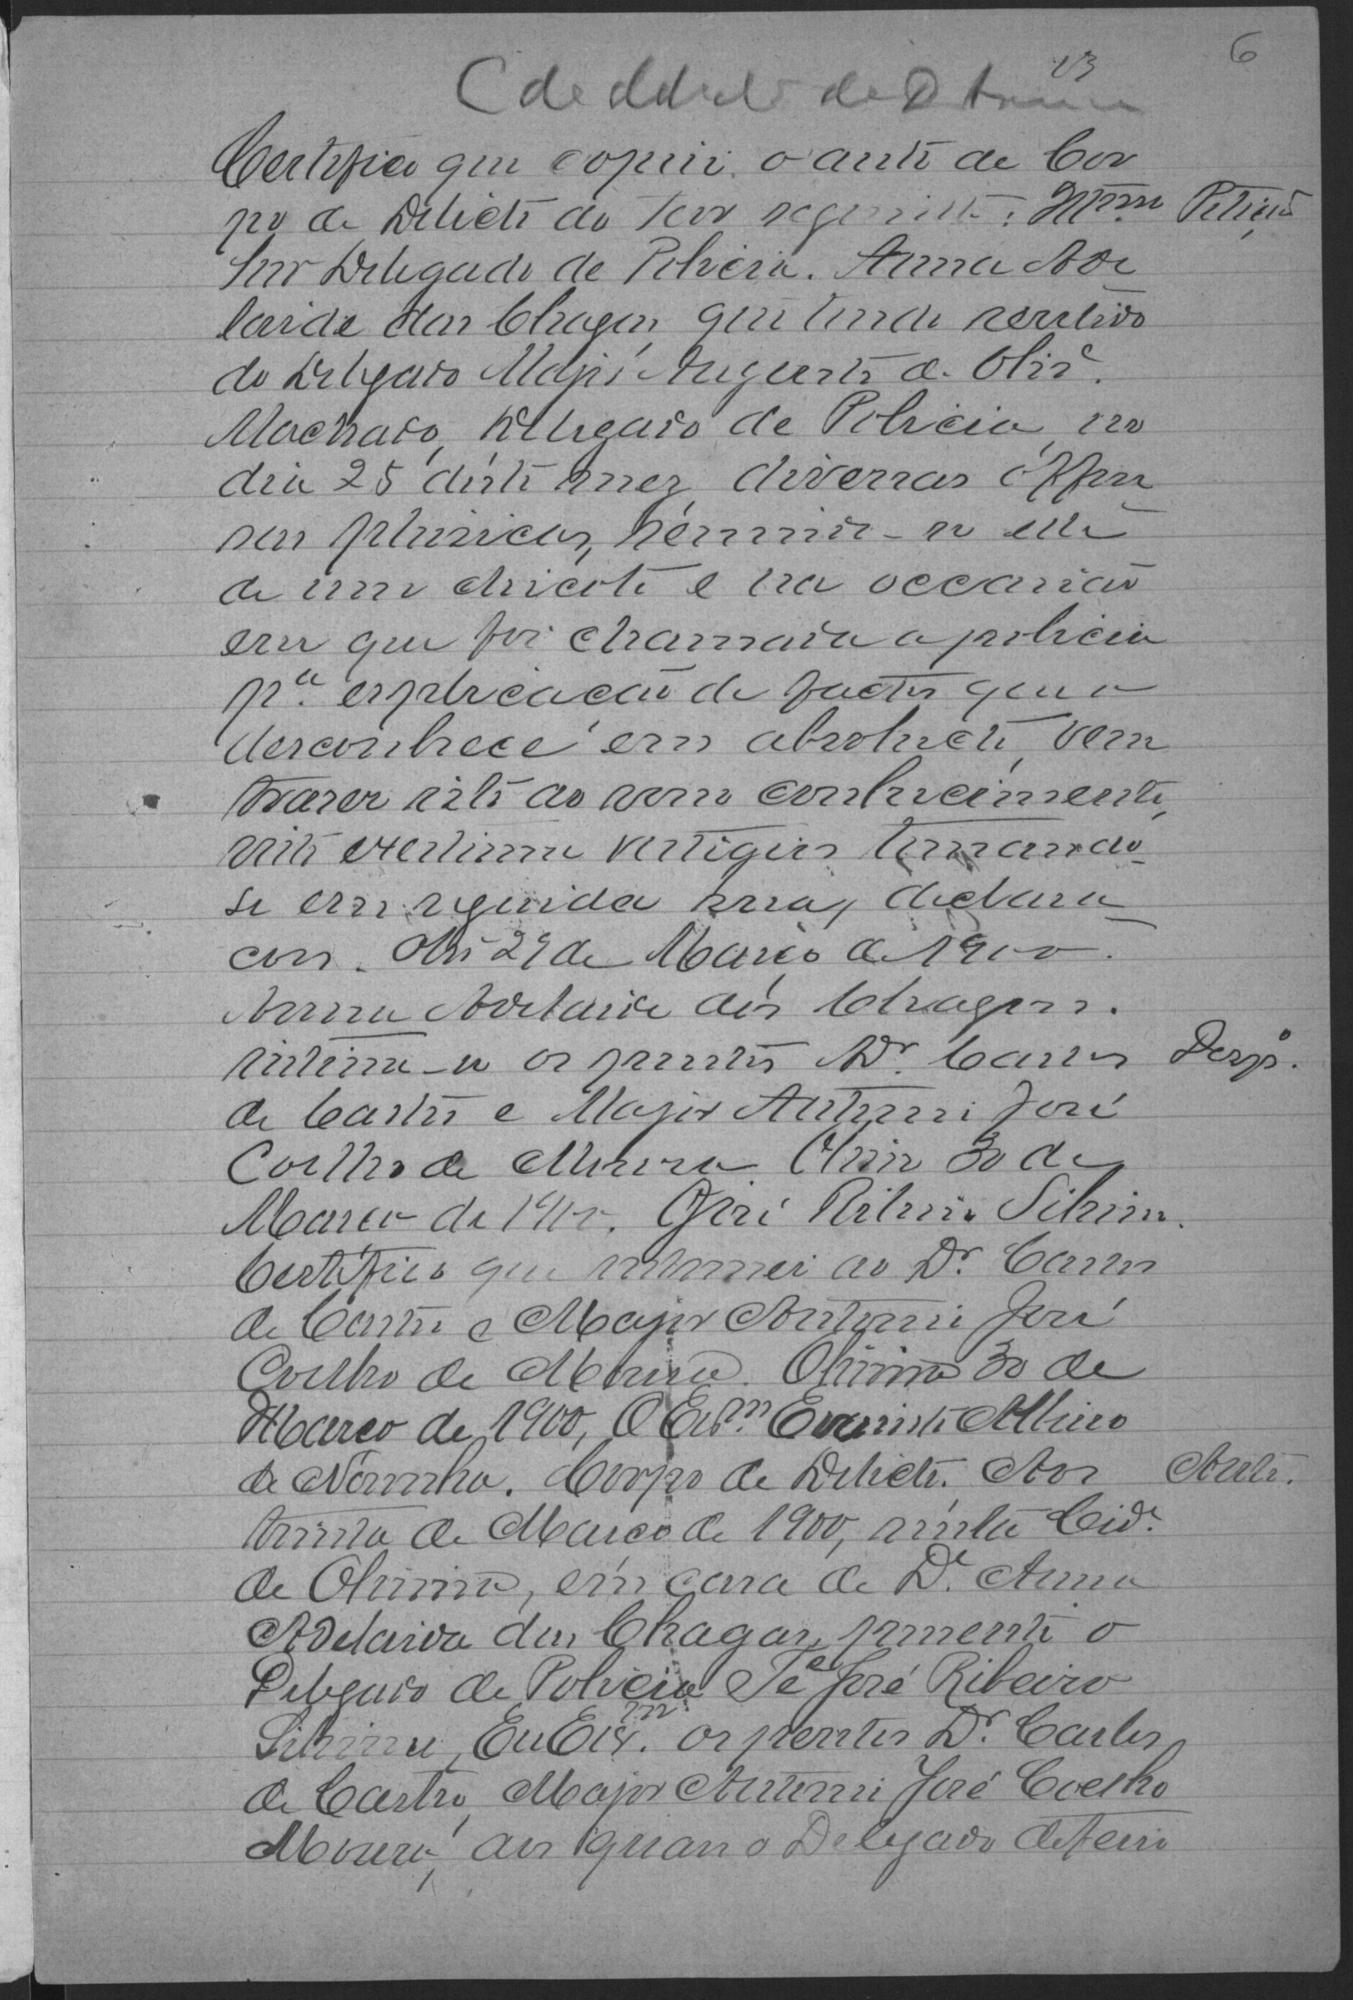 6
23
C de delicto de D Anna
Certifico que copiei o auto de Cor
po de Delicto do teor seguinte: Illmo Petição
Snr Delegado de Policia. Anna Ade
laide das Chagas, que tendo recebido
do Delegado Major Augusto de Olivª
Machado, Delegado de Policia, no
dia 25 deste mez diversas offen
sas phisicas, servindo-se elle
de um chicote e na occasião
em que foi chamada a policia
pª explicação de factos que a
desconhece em absoluto, vem
trazer isto ao vosso conhecimento,
visto existirem vestigios tomando-
se em seguida suas declara
ções. Olª 29 de Março de 1900.
Anna Adelaide das Chagas.
intime-se os peritos Dr. Carlos Despº.
de Castro e Major Antonio José
Coelho de Moura Olinda 30 de
Março de 1900. José Ribeiro
Certifico que intimei ao Dr Carlos
de Castro e Major Antonio José
Coelho de Moura. 30 de
Março de 1900, O Escm Evaristo
de Noronha. Corpo de Delicto. Aos Auto.
trinta de Março de 1900, nésta Cide
de em casa de Dª Anna
Adelaida das Chagas, presente o
Delegado de Policia Te José Ribeiro
Eu Escm. os peritos Dr Carlos
de Castro, Major Antonio José Coelho
Moura, aos quaes o Delegado deferio